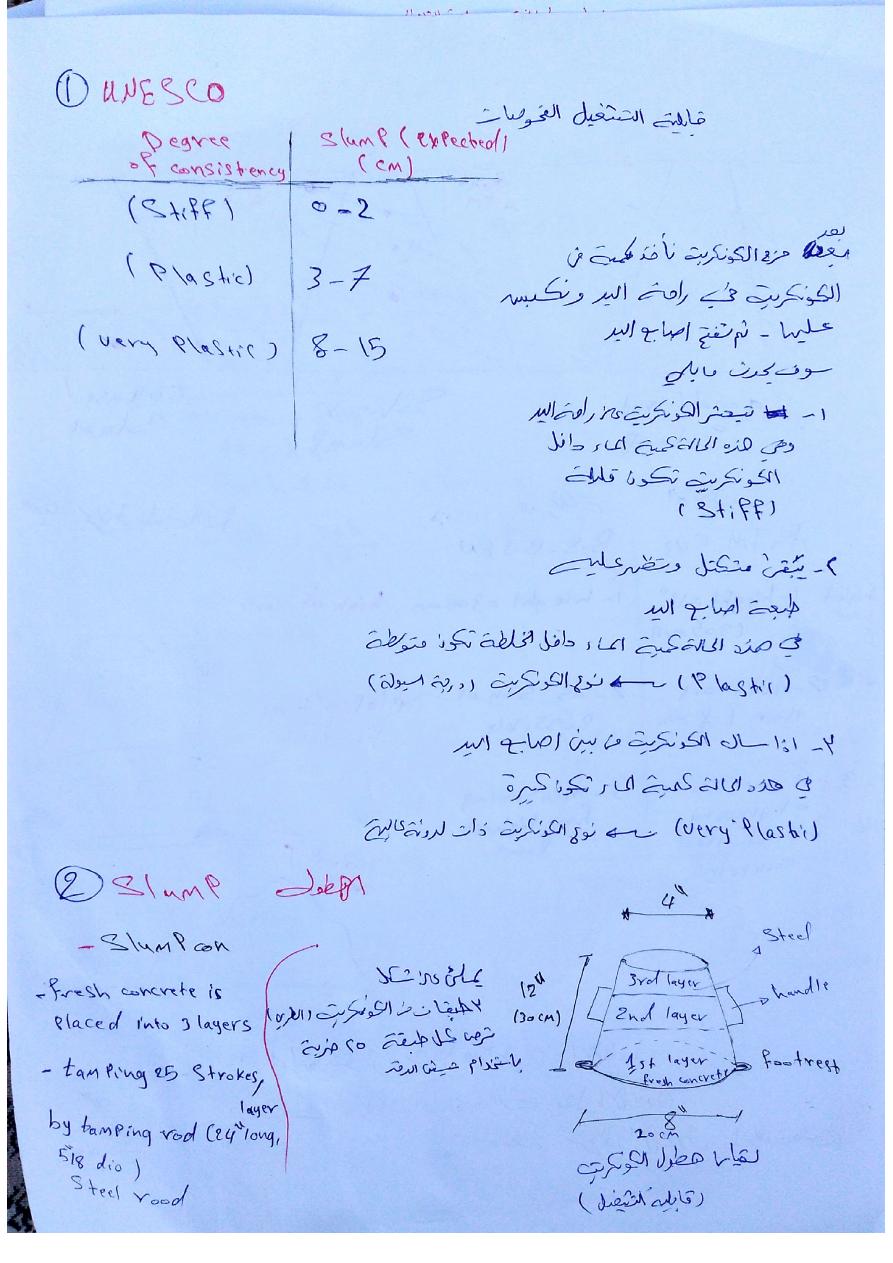 ① UNESCO
قابلية التشغيل الفحوصات
Degree of consistency | Slump (expected) (cm)
(Stiff) | 0-2
(Plastic) | 3-7
(very Plastic) | 8-15
بعد مزج الكونكريت نأخذ كمية من
الكونكريت في راحة اليد ونكبس
عليها - ثم نفتح اصابع اليد
سوف يحدث مايلي
١- تبعثر الكونكريت على راحة اليد
وفي هذه الحالة كمية الماء داخل
الكونكريت تكون قليلة
(Stiff)
٢- يبقى متكتل وتظهر عليه
طبعة اصابع اليد
في هذه الحالة كمية الماء داخل الخلطة تكون متوسطة
(Plastic) ← نوع الكونكريت (درجة السيولة)
٣- اذا سال الكونكريت من بين اصابع اليد
في هذه الحالة كمية الماء تكون كبيرة
(very Plastic) ← نوع الكونكريت ذات لدونة عالية
② Slump الهطول
- Slump con
- fresh concrete is
Placed into 3 layers
- tamping 25 Strokes/
layer
by tamping rod (24" long,
5/8" dio)
Steel rood
يملئ على شكل
٣ طبقات من الكونكريت (الطري)
ترص كل طبقة ٢٥ ضربة
باستخدام
4"
12"
(30cm)
Steel
handle
footrest
3rd layer
2nd layer
1st layer
fresh concrete
8"
20cm
لقياس هطول الكونكريت
(قابلية التشغيل)